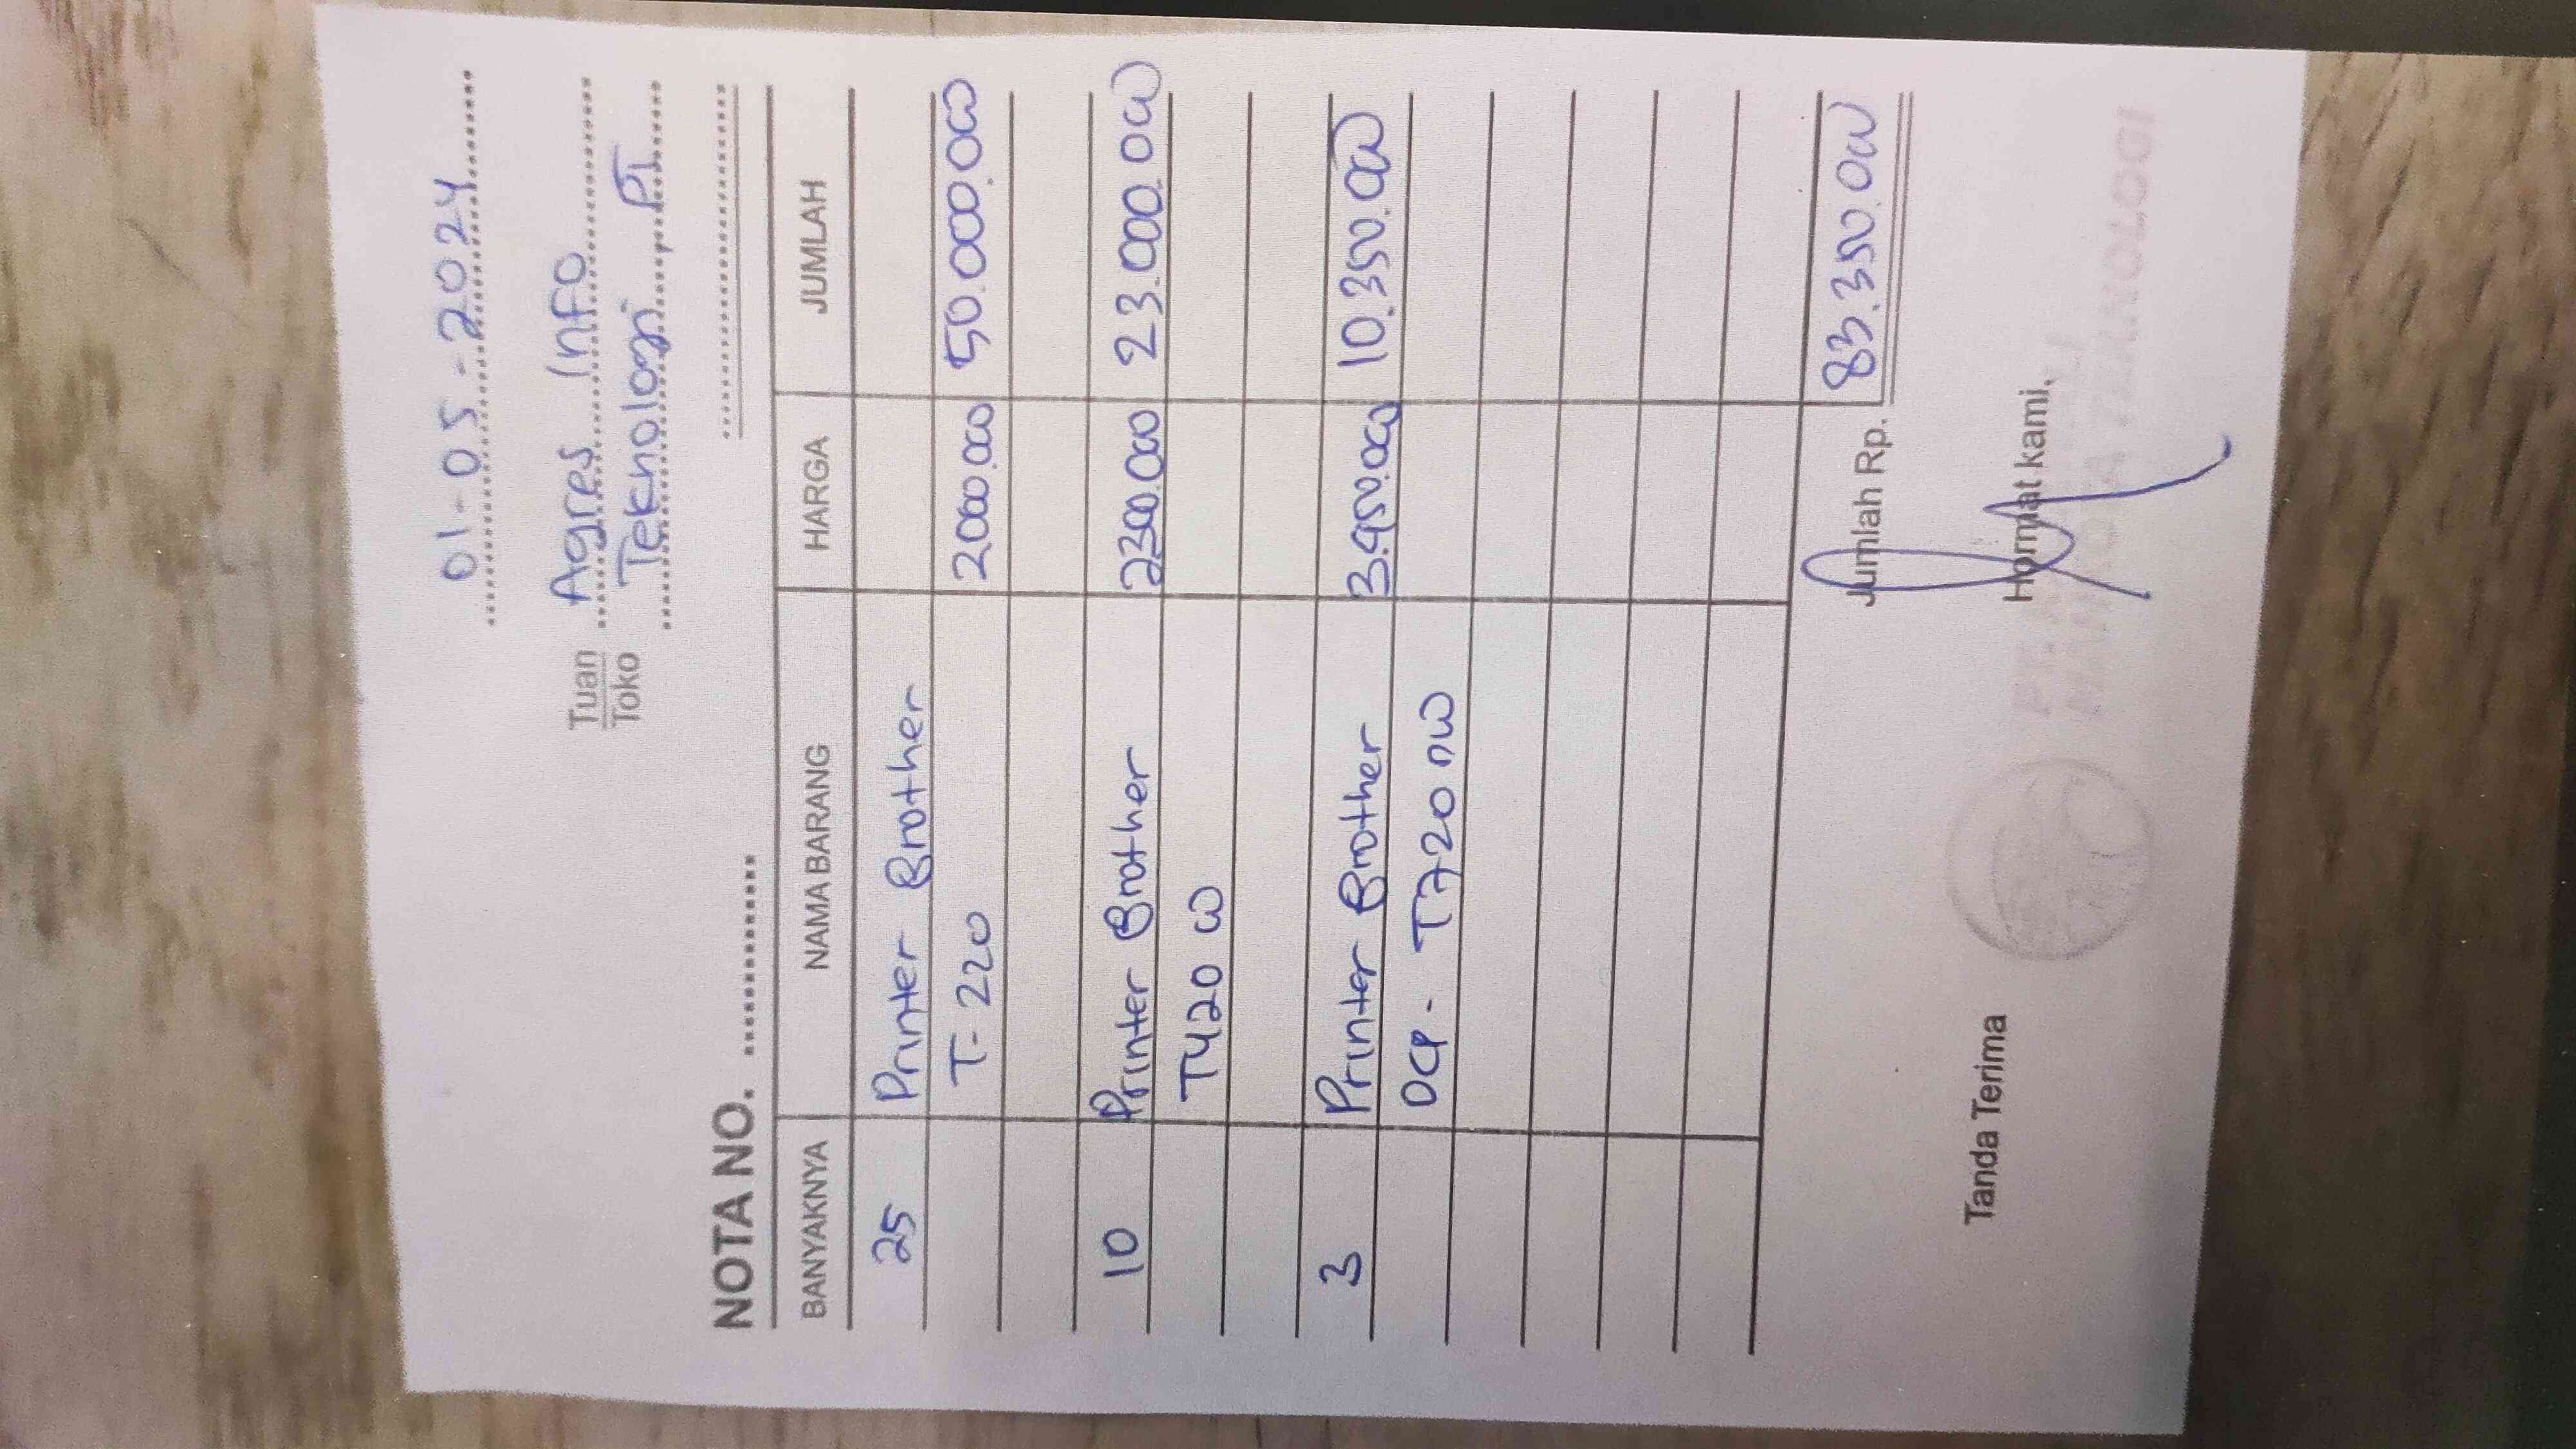 01-05-2024
Tuan Agres Info
Toko Teknologi PT
NOTA NO.
BANYAKNYA NAMA BARANG HARGA JUMLAH
25 Printer Brother
T-220 2000.000 50.000.000
10 Printer Brother 2300.000 23.000.000
T420 W
3 Printer Brother 3.450.000 10.350.000
DCP - T720 nw
Jumlah Rp. 83.350.000
Tanda Terima Hormat kami,
TEKNOLOGI